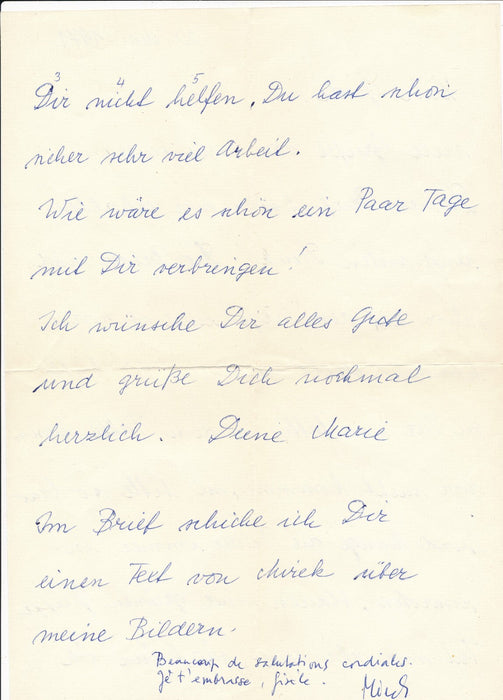 3 4 5
Dir nicht helfen. Du hast schon
sicher sehr viel Arbeit.
Wie wäre es schön ein Paar Tage
mit Dir verbringen!
Ich wünsche Dir alles Gute
und grüße Dich nochmal
herzlich. Deine Marie
Im Brief schicke ich Dir
einen Text von Mirek über
meine Bildern.
Beaucoup de salutations cordiales.
Je t'embrasse, Gisèle.